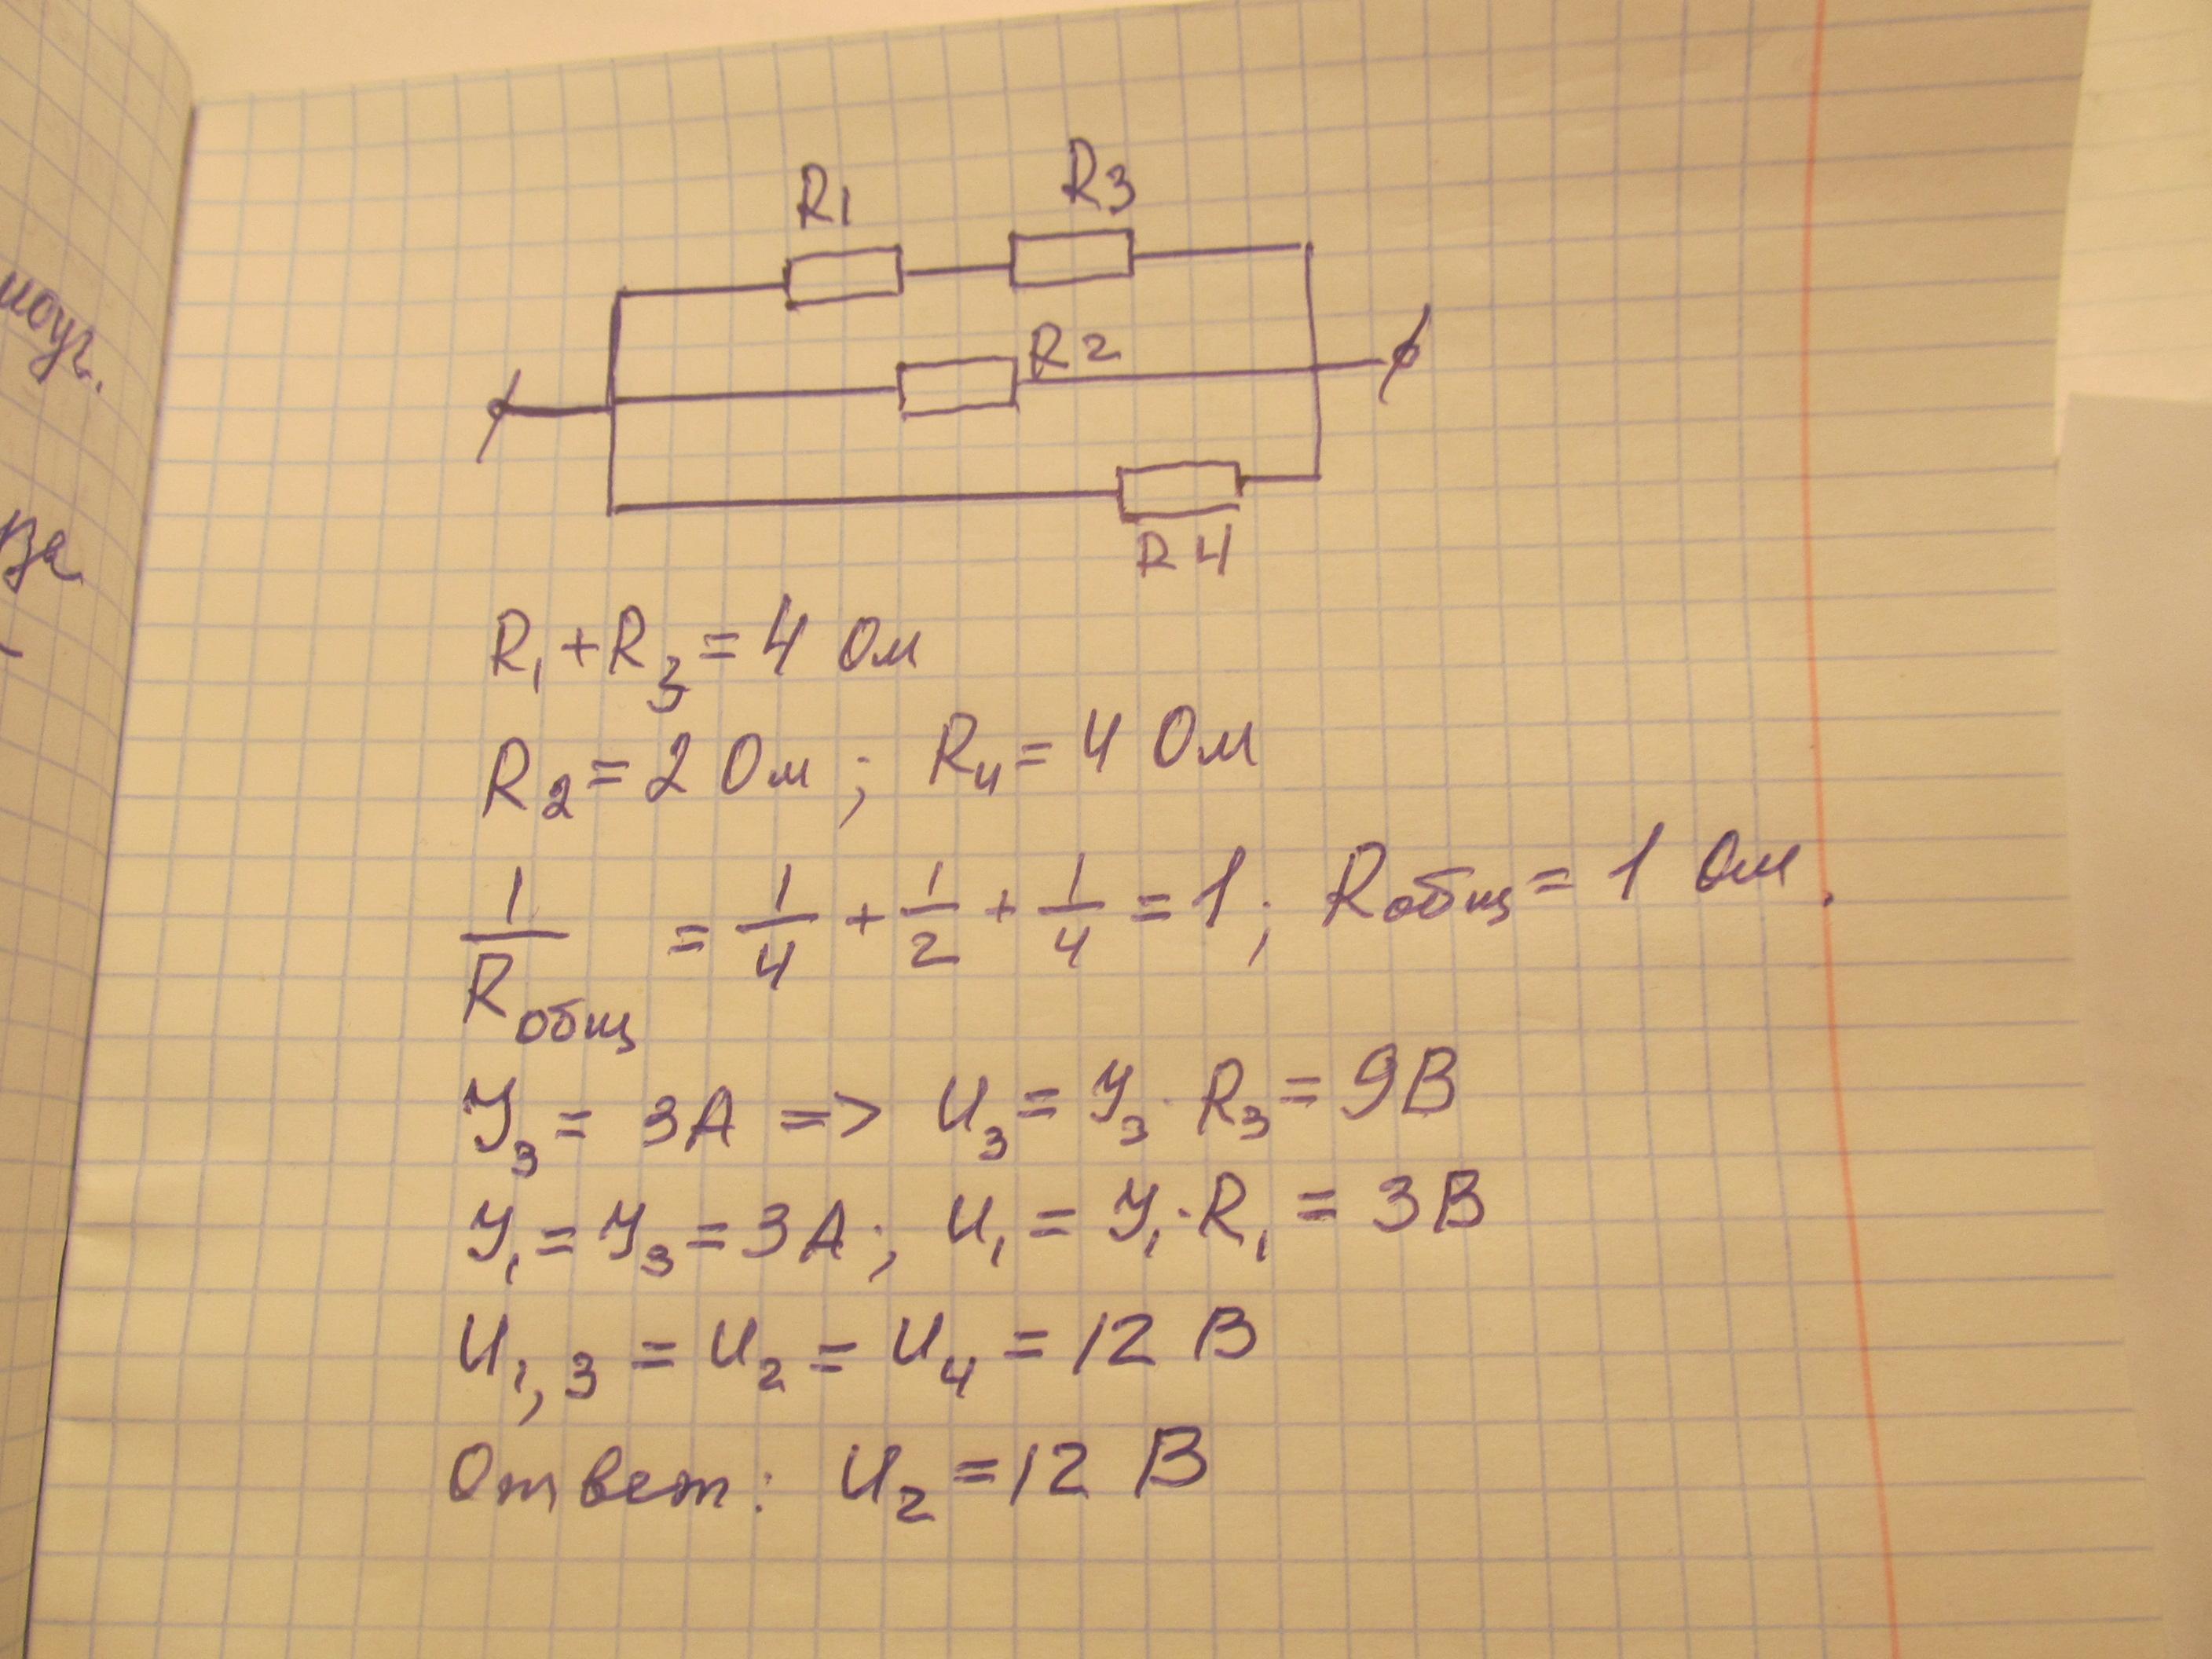 R1 R3
R2
R4
R₁+R₃=4 Ом
R₂=2 Ом; R₄=4 Ом
1/Rобщ = 1/4 + 1/2 + 1/4 = 1; Rобщ = 1 Ом.
У₃ = 3А => U₃ = У₃·R₃ = 9В
У₁ = У₃ = 3А; U₁ = У₁·R₁ = 3В
U₁,₃ = U₂ = U₄ = 12 В
Ответ: U₂ = 12 В